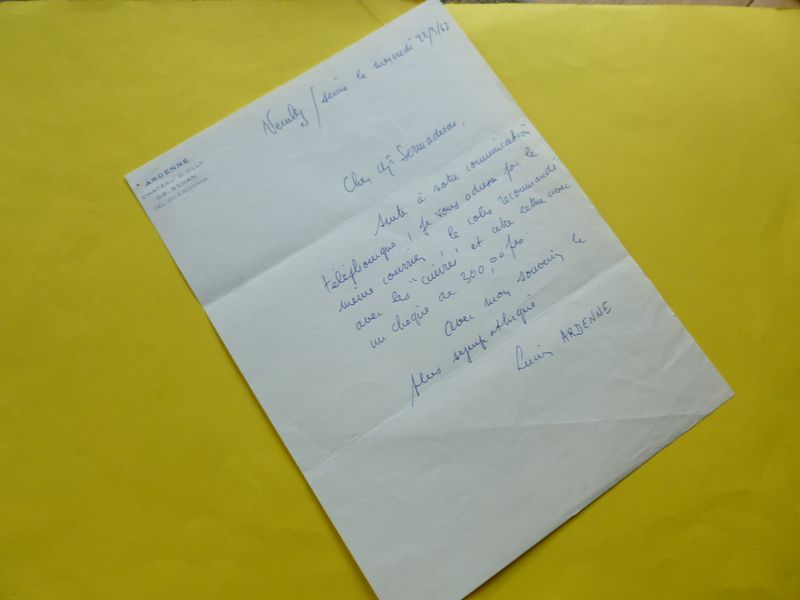 ARDENNE
CHATEAU D'OLLY
08-SEDAN
Neuilly/seine le mercredi 22/3/67
Cher Mr Sermadiras,
Suite à notre communication
téléphonique, je vous adresse par le
même courrier le colis recommandé
avec les "cuivres" et cette lettre avec
un chèque de 300,00 frs.
Avec mon souvenir le
plus sympathique
Lucien ARDENNE